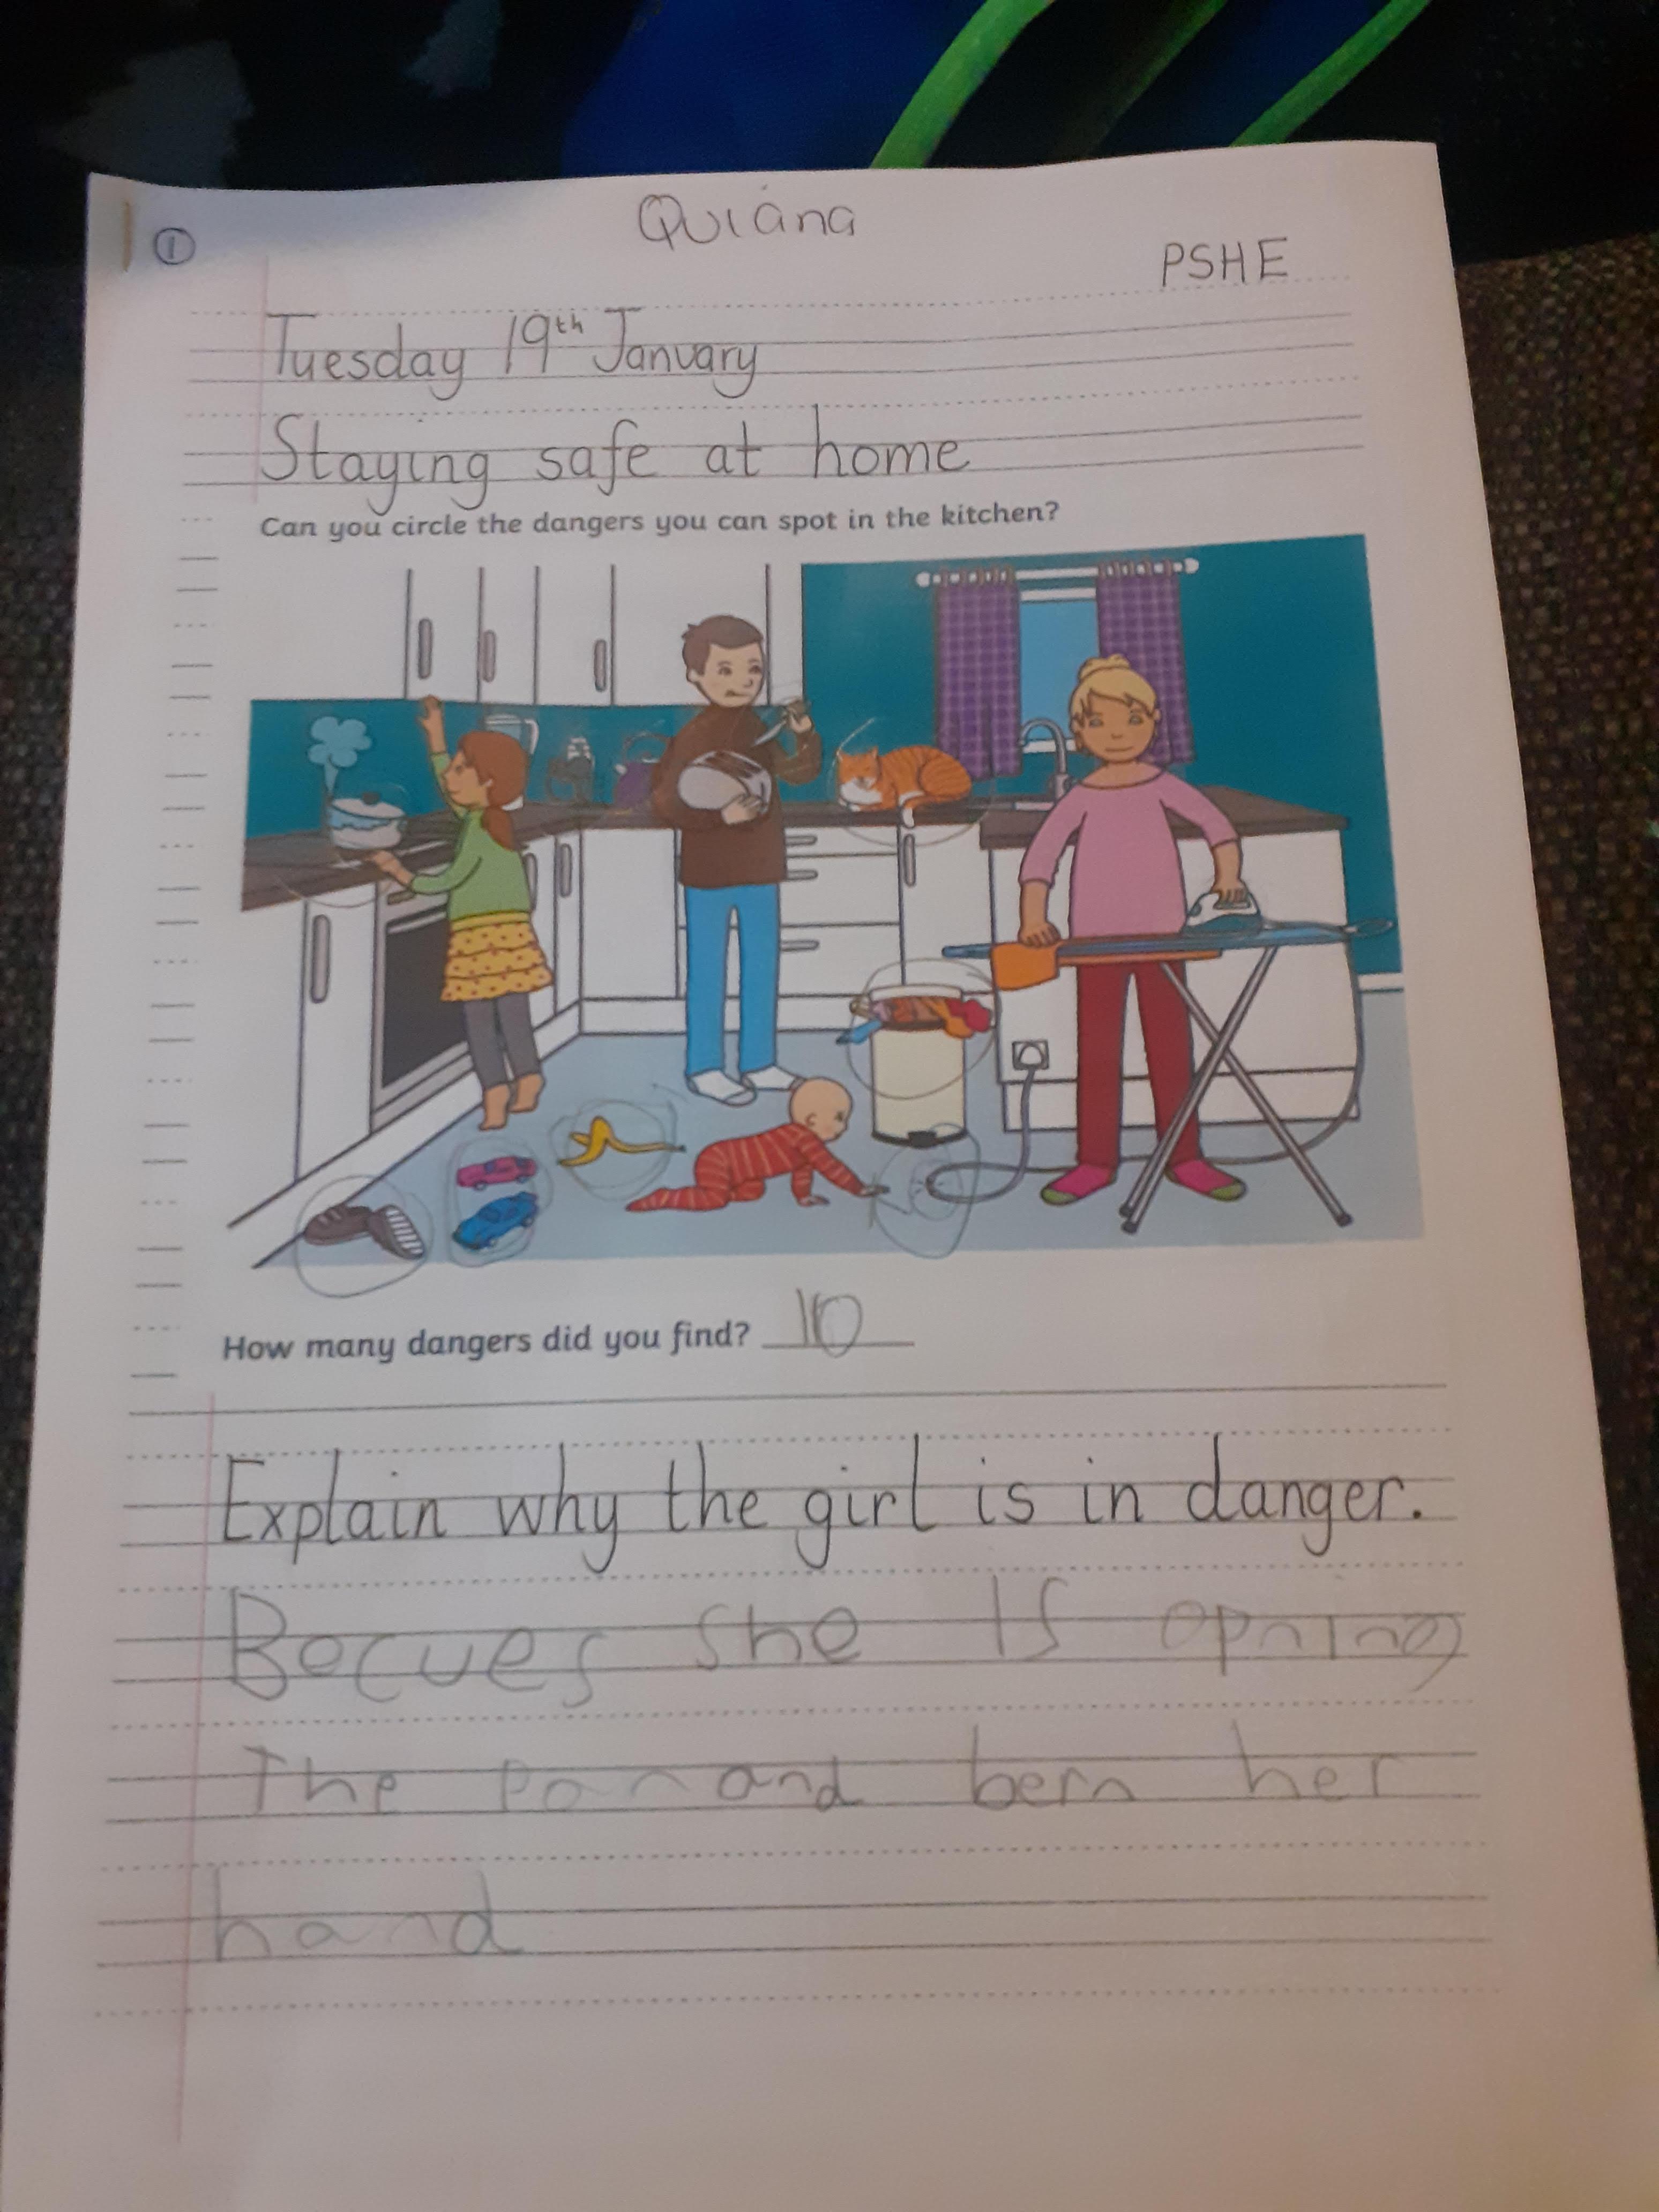 ①
Quiana
PSHE
Tuesday 19th January
Staying safe at home
Can you circle the dangers you can spot in the kitchen?
How many dangers did you find? 10
Explain why the girl is in danger.
Becues She Is opning
The pan and bern her
hand